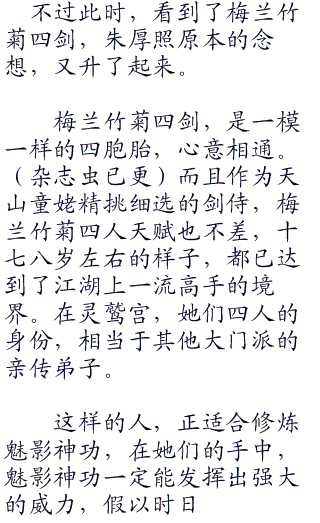 不过此时，看到了梅兰竹
菊四剑，朱厚照原本的念
想，又升了起来。
梅兰竹菊四剑，是一模
一样的四胞胎，心意相通。
（杂志虫已更）而且作为天
山童姥精挑细选的剑侍，梅
兰竹菊四人天赋也不差，十
七八岁左右的样子，都已达
到了江湖上一流高手的境
界。在灵鹫宫，她们四人的
身份，相当于其他大门派的
亲传弟子。
这样的人，正适合修炼
魅影神功，在她们的手中，
魅影神功一定能发挥出强大
的威力，假以时日